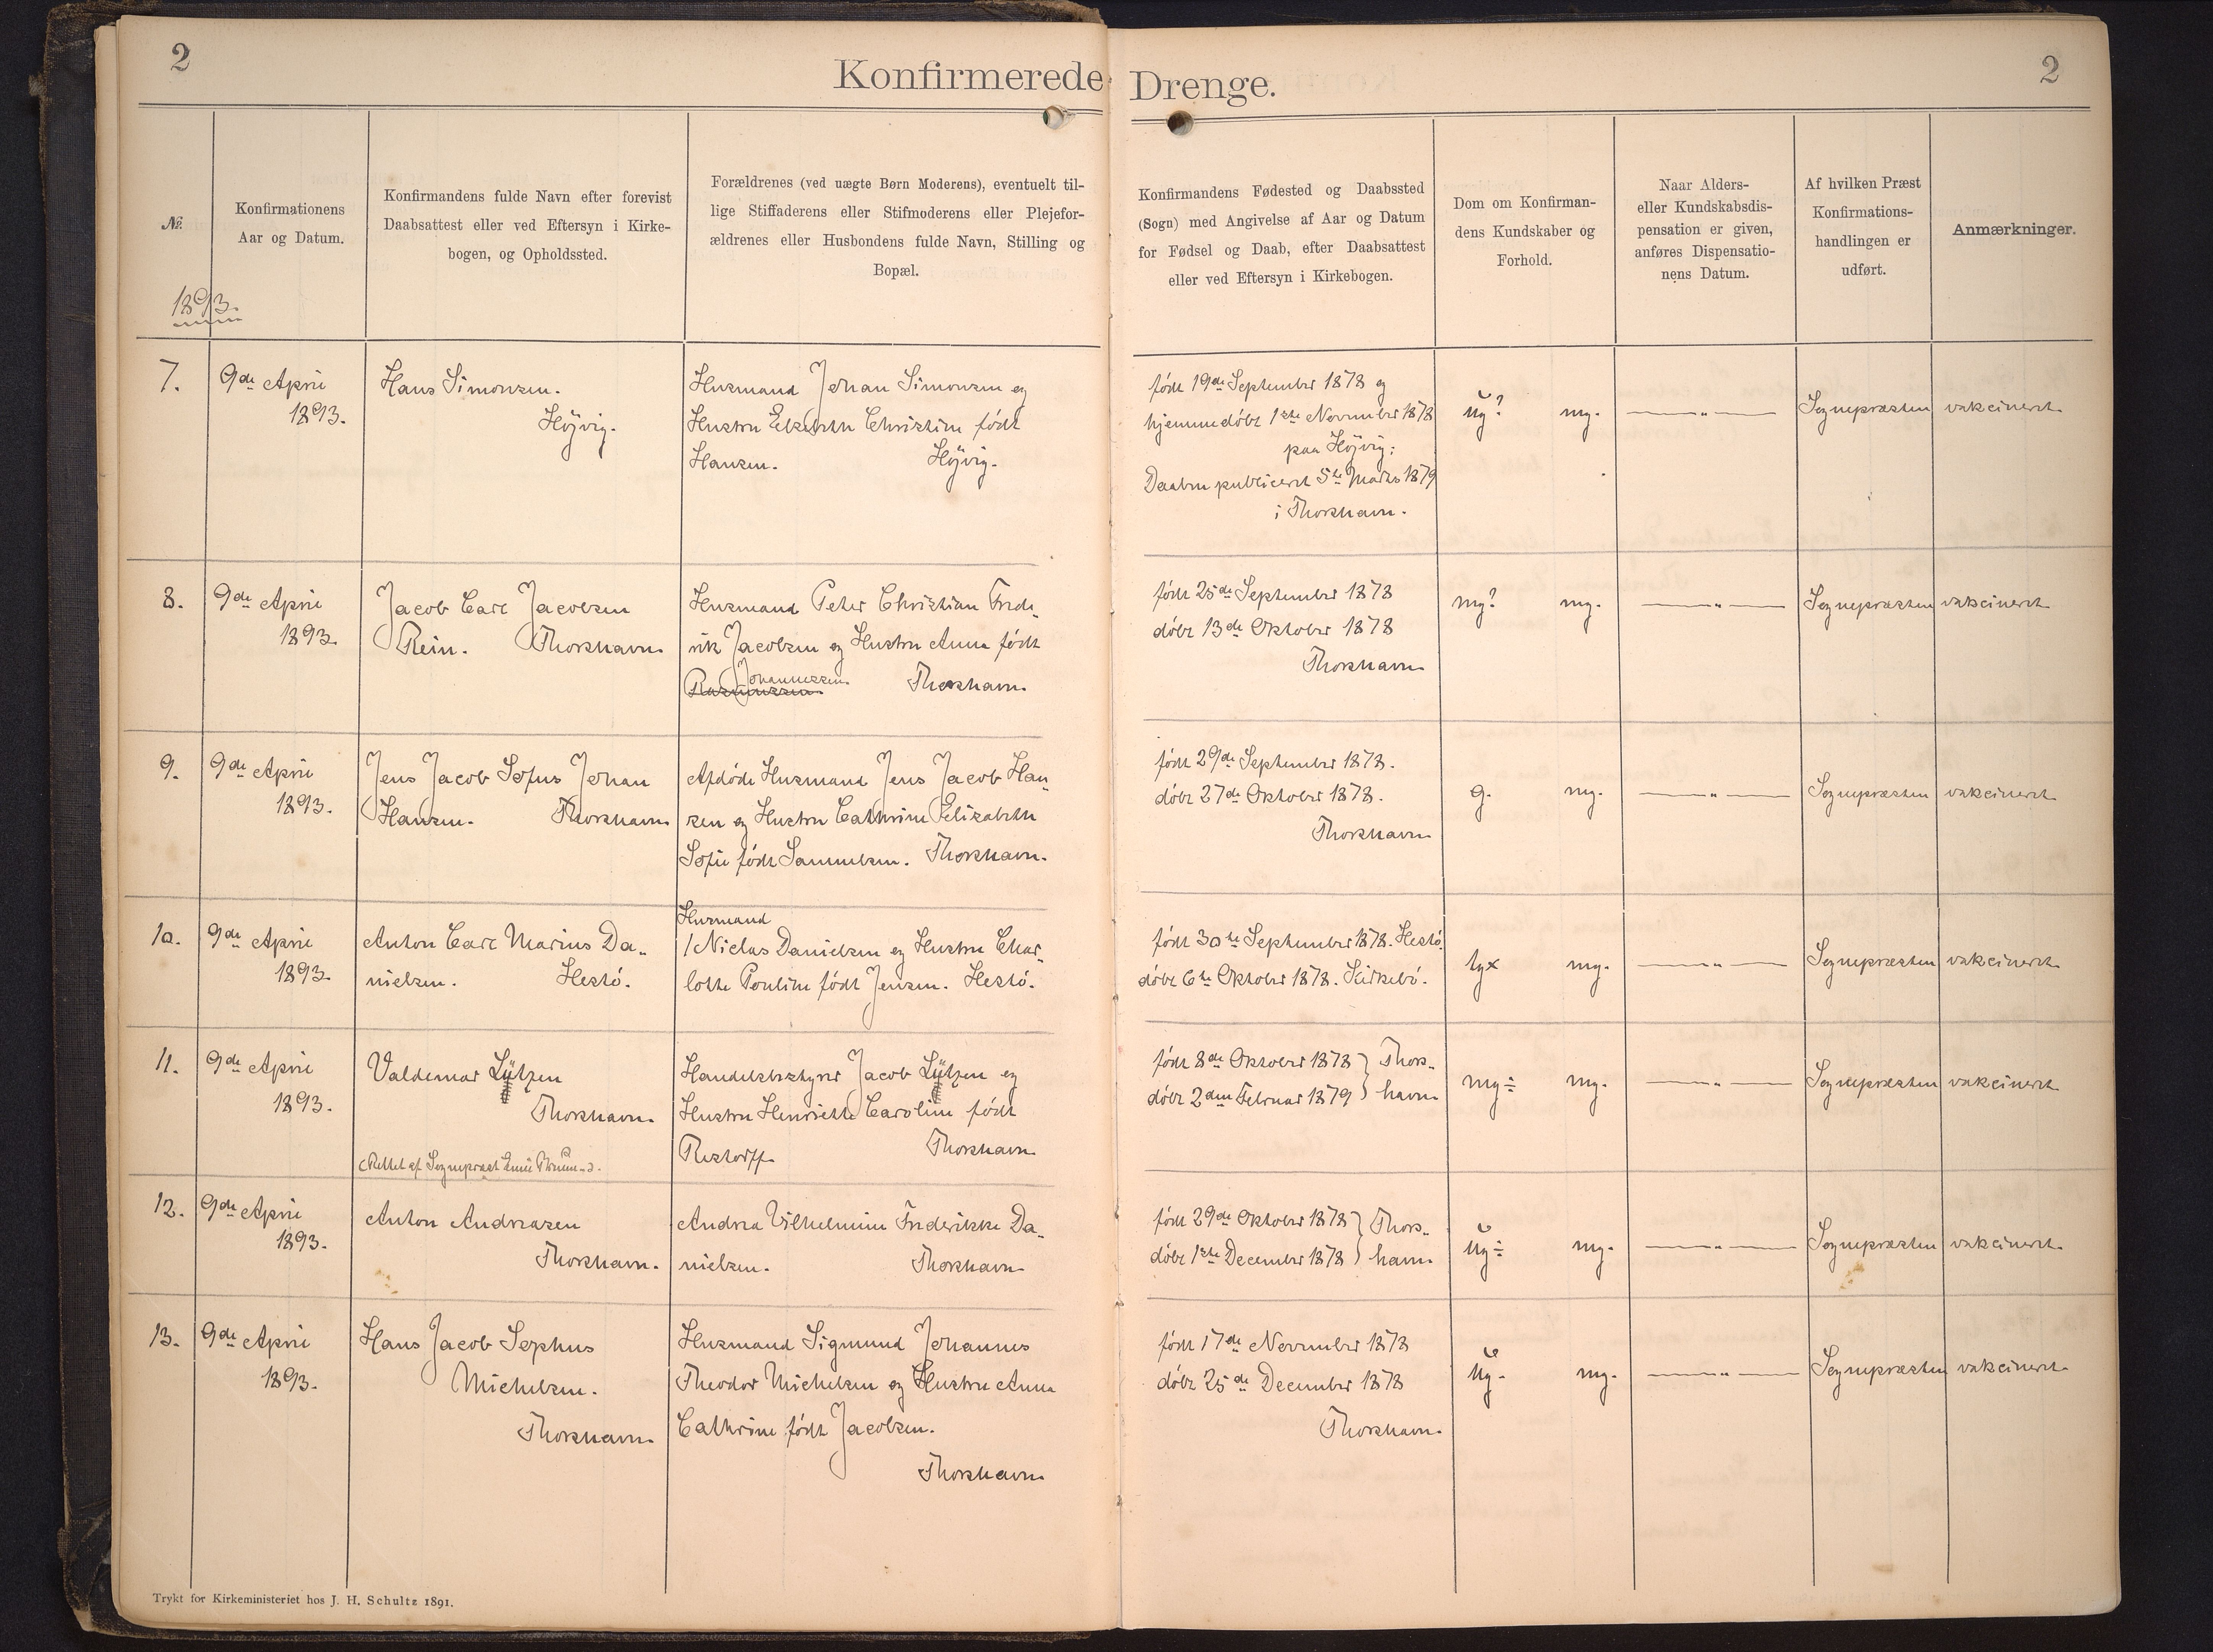 2
Konfirmerede Drenge.
2
№
Konfirmationens
Aar og Datum.
Konfirmandens fulde Navn efter forevist
Daabsattest eller ved Eftersyn i Kirke-
bogen, og Opholdssted.
Forældrenes (ved uægte Børn Moderens), eventuelt til-
lige Stiffaderens eller Stifmoderens eller Plejefor-
ældrenes eller Husbondens fulde Navn, Stilling og
Bopæl.
Konfirmandens Fødested og Daabssted
(Sogn) med Angivelse af Aar og Datum
for Fødsel og Daab, efter Daabsattest
eller ved Eftersyn i Kirkebogen.
Dom om Konfirman-
dens Kundskaber og
Forhold.
Naar Alders-
eller Kundskabsdis-
pensation er given,
anføres Dispensatio-
nens Datum.
Af hvilken Præst
Konfirmations-
handlingen er
udført.
Anmærkninger.
1893.
7.
9de April
1893.
Hans Simonsen.
Höjvig.
Husmand Johan Simonsen og
Hustru Elsebeth Christine født
Hansen. Höjvig.
født 19de September 1878 og
hjemmedöbt 1ste November 1878
paa Höjvig;
Daaben publiceret 5te Marts 1879
i Thorshavn.
ug? mg.
—„—
Sognepræsten
vakcineret
8.
9de April
1893.
Jacob Carl Jacobsen
Rein. Thorshavn.
Husmand Peter Christian Frede-
rik Jacobsen og Hustru Anna født
Johannessen
Rasmussen. Thorshavn.
født 25de September 1878
döbt 13de Oktober 1878
Thorshavn
mg? mg.
—„—
Sognepræsten
vakcineret
9.
9de April
1893.
Jens Jacob Sofus Johan
Hansen. Thorshavn
Afdöde Husmand Jens Jacob Han-
sen og Hustru Cathrine Elisabeth
Sofie født Samuelsen. Thorshavn.
født 29de September 1878.
döbt 27de Oktober 1878.
Thorshavn
g. mg.
—„—
Sognepræsten
vakcineret
10.
9de April
1893.
Anton Carl Marius Da-
nielsen. Hestö.
Husmand
/Niclas Danielsen og Hustru Char-
lotte Pouline født Jensen. Hestö.
født 30te September 1878. Hestö.
döbt 6te Oktober 1878. Kirkebö.
tgx mg.
—„—
Sognepræsten
vakcineret
11.
9de April
1893.
Valdemar Lützen
Thorshavn.
(Rettet af Sognepræst Emil Bruun.)
Handelsbestyrer Jacob Lützen og
Hustru Henriette Caroline født
Restorff Thorshavn
født 8de Oktober 1878 } Thors-
döbt 2den Februar 1879 } havn
mg÷ mg.
—„—
Sognepræsten
vakcineret
12.
9de April
1893.
Anton Andreasen
Thorshavn.
Andrea Vilhelmine Frederikke Da-
nielsen. Thorshavn
født 29de Oktober 1878 } Thors-
döbt 1ste December 1878 } havn.
ug÷ mg.
—„—
Sognepræsten
vakcineret.
13.
9de April
1893.
Hans Jacob Sophus
Michelsen.
Thorshavn.
Husmand Sigmund Johannes
Theodor Michelsen og Hustru Anna
Cathrine født Jacobsen.
Thorshavn
født 17de November 1878
döbt 25de December 1878
Thorshavn.
ug- mg.
—„—
Sognepræsten
vakcineret.
Trykt for Kirkeministeriet hos J. H. Schultz 1891.